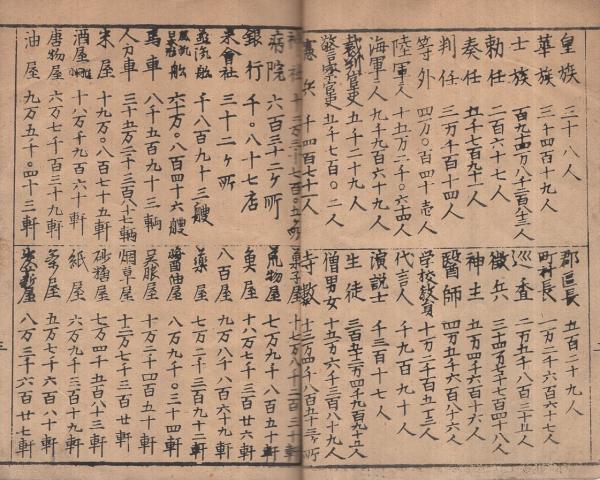 皇族 三十八人
華族 三千四百十九人
士族 百九十四万八千二百八十三人
勅任 二百六十七人
奏任 五千七百九十一人
判任 三万千百十四人
等外 四万〇百四十壱人
陸軍人 十五万二千〇六十四人
海軍々人 九千九百六十九人
裁判官吏 五千二十九人
警察官吏 五千七百〇二人
憲兵 千四百七十一人
郡區長 五百二十九人
町村長 一万二千六百六十七人
巡査 二万五千八百三十五人
徴兵
神主 五万四千六百十六人
醫師 四万五千六百十八人
学校教員 十万二千百五十三人
代言人 千九百九十人
演説士 千三百十七人
生徒
僧男女 十五万六千三百八十九人
寺数
神社
病院 六百三十二ヶ所
銀行 千〇八十七店
米會社 三十二ヶ所
蒸汽船 千八百九十三艘
六十万〇八百四十六艘
馬車 八千五百九十三輌
人力車 三十五万二千三百八十七輌
米屋 十九万〇八百七十五軒
酒屋 十八万千九百六十軒
唐物屋 六万七千百三十九軒
油屋 九万五千〇四十三軒
菓子屋
荒物屋 七万九千八百五十軒
魚屋 十八万七千三百廿六軒
八百屋 九万八千八百六十九軒
薬屋 七万二千三百九十二軒
醤油屋 八万九千〇三十四軒
呉服屋 十万二千四百五十軒
烟草屋 十二万七千三百三軒
砂糖屋 七万四千五百八十三軒
紙屋 六万九千三百十九軒
茶屋 五万七千六百八十軒
八万三千六百廿七軒
三